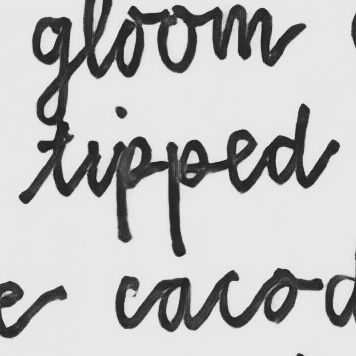 gloom
tipped
e cacod